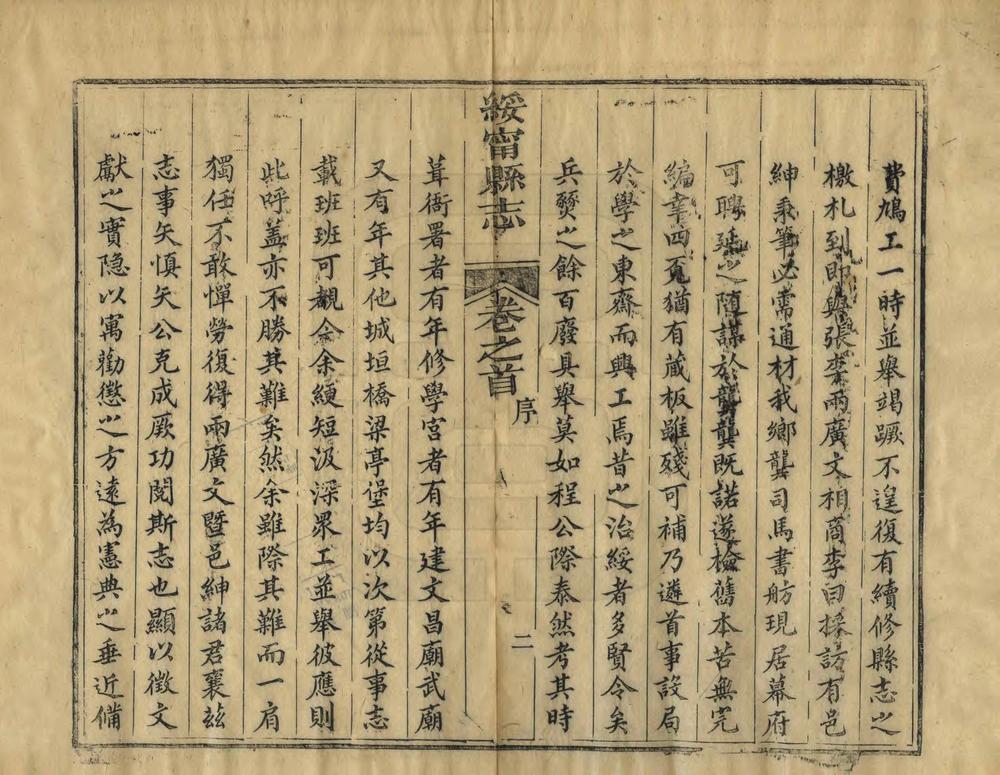 費鳩工一時並舉竭蹶不遑復有續修縣志之
檄札到即與張李兩廣文相商李曰採訪有邑
紳秉筆必需通材我鄉龔司馬書舫現居幕府
可聘延之隨謀於龔龔既諾遂檢舊本苦無完
編幸四頁猶有蔵板雖殘可補乃遴首事設局
於學之東齋而興工焉昔之治綏者多賢令矣
兵燹之餘百廢具舉莫如程公際泰然考其時
綏甯縣志
卷之首
序
二
葺衙署者有年修學宮者有年建文昌廟武廟
又有年其他城垣橋梁亭堡均以次第從事志
載班班可覩今余綆短汲深眾工並舉彼應則
此呼盖亦不勝其難矣然余雖際其難而一肩
獨任不敢憚勞復得兩廣文暨邑紳諸君襄玆
志事矢慎矢公克成厥功閱斯志也顯以徵文
獻之實隐以寓勸懲之方遠為憲典之垂近備